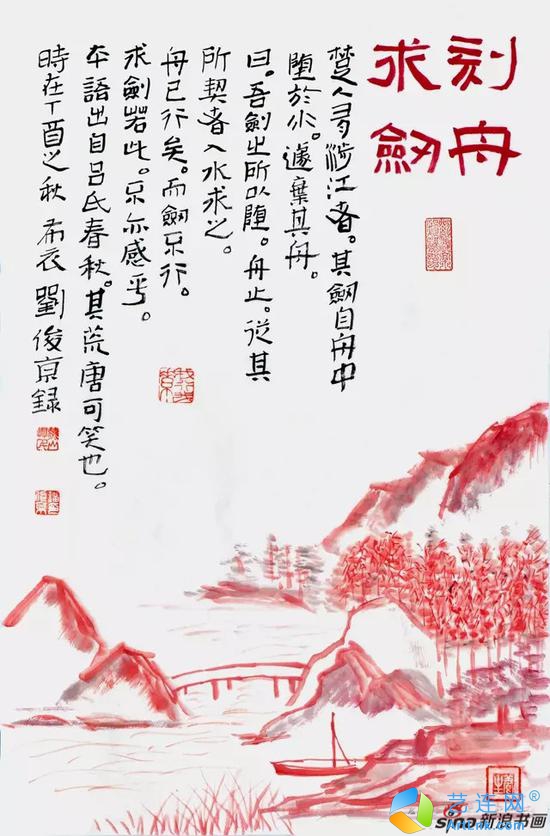 刻舟
求劍
楚人有涉江者。其劍自舟中
墮於水。遽棄其舟。
曰。吾劍之所以墮。舟止。從其
所契者入水求之。
舟已行矣。而劍不行。
求劍若此。不亦感乎。
本語出自吕氏春秋。其荒唐可笑也。
時在丁酉之秋 布衣 劉俊京録
艺连网®
sina新浪书画